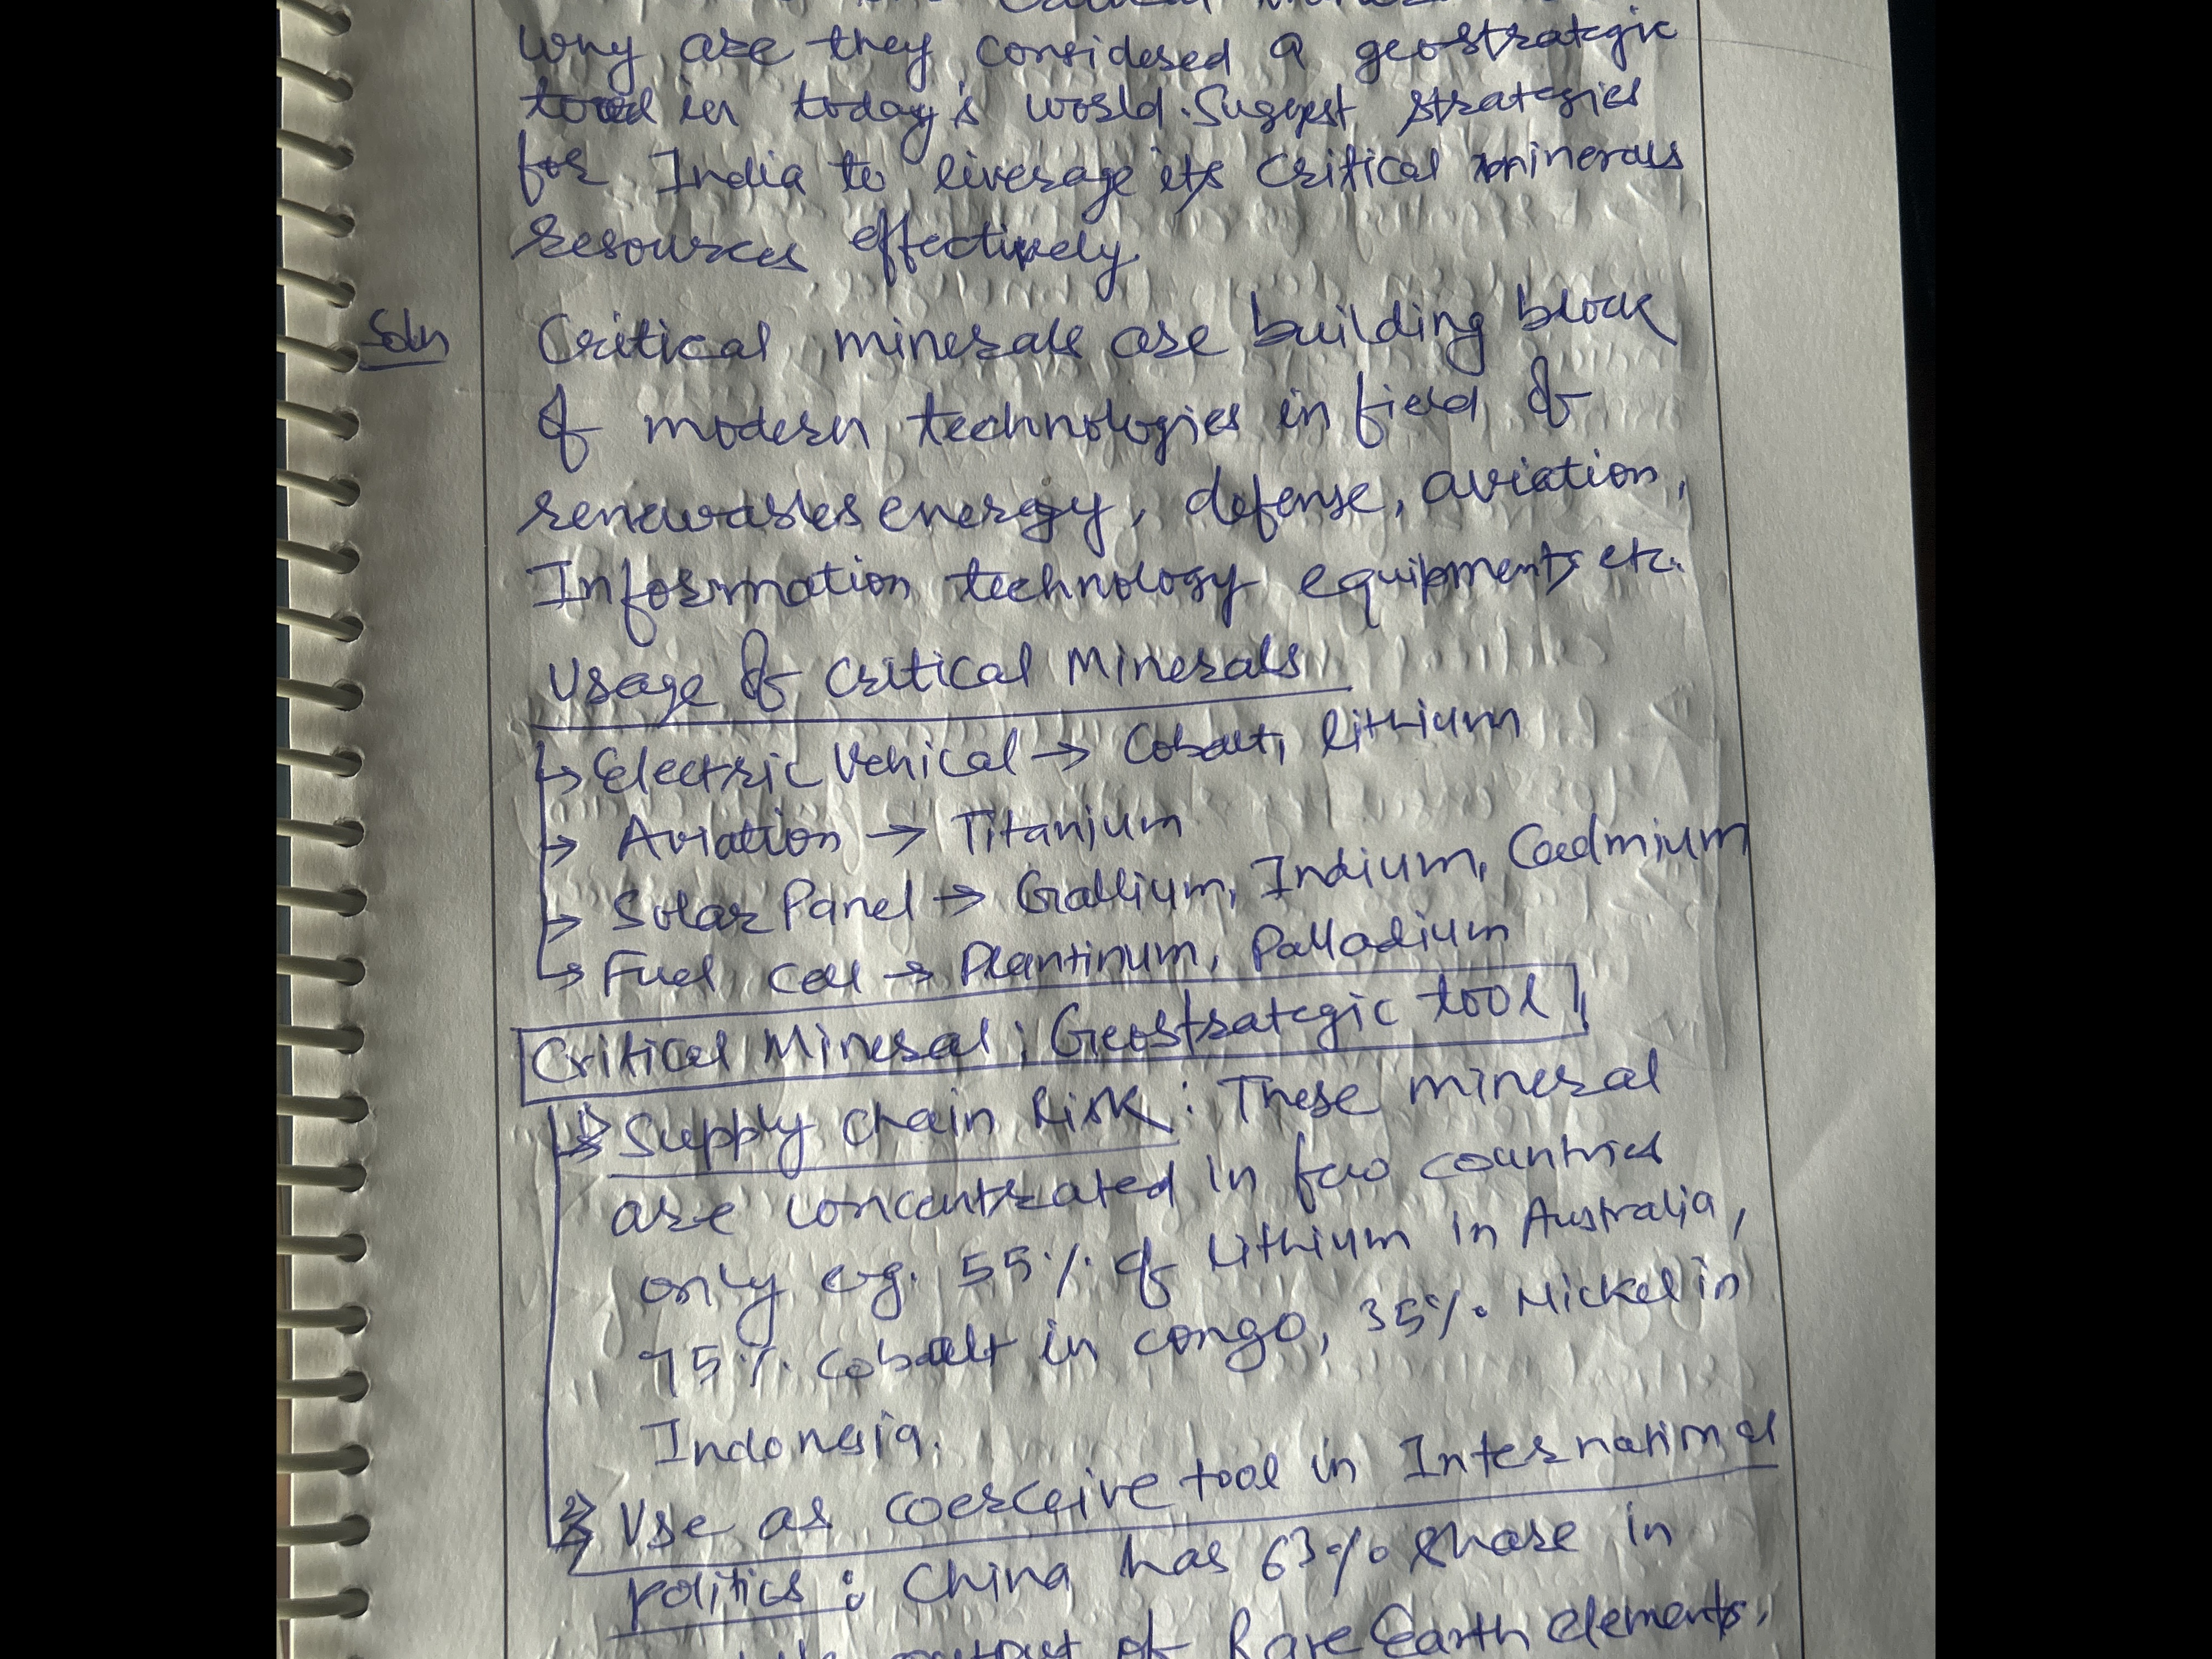 Why are they considered a geostrategic
tool in today's world. Suggest strategies
for India to liverage its critical minerals
resources effectively.
Soln
Critical minerals are building block
of modern technologies in field of
renewables energy, defense, aviation,
Information technology equipments etc.
Usage of Critical Minerals
Electric Vehical → Cobalt, lithium
Aviation → Titanium
Solar Panel → Gallium, Indium, Cadmium
Fuel Cell → Plantinum, Palladium
Critical Mineral : Geostrategic tool
1) Supply Chain Risk : These mineral
are concentrated in few countries
only eg. 55% of Lithium in Australia,
75% cobalt in congo, 35% Nickel in
Indonesia.
2) Use as coerceive tool in International
politics : China has 63% share in
output of Rare Earth elements,